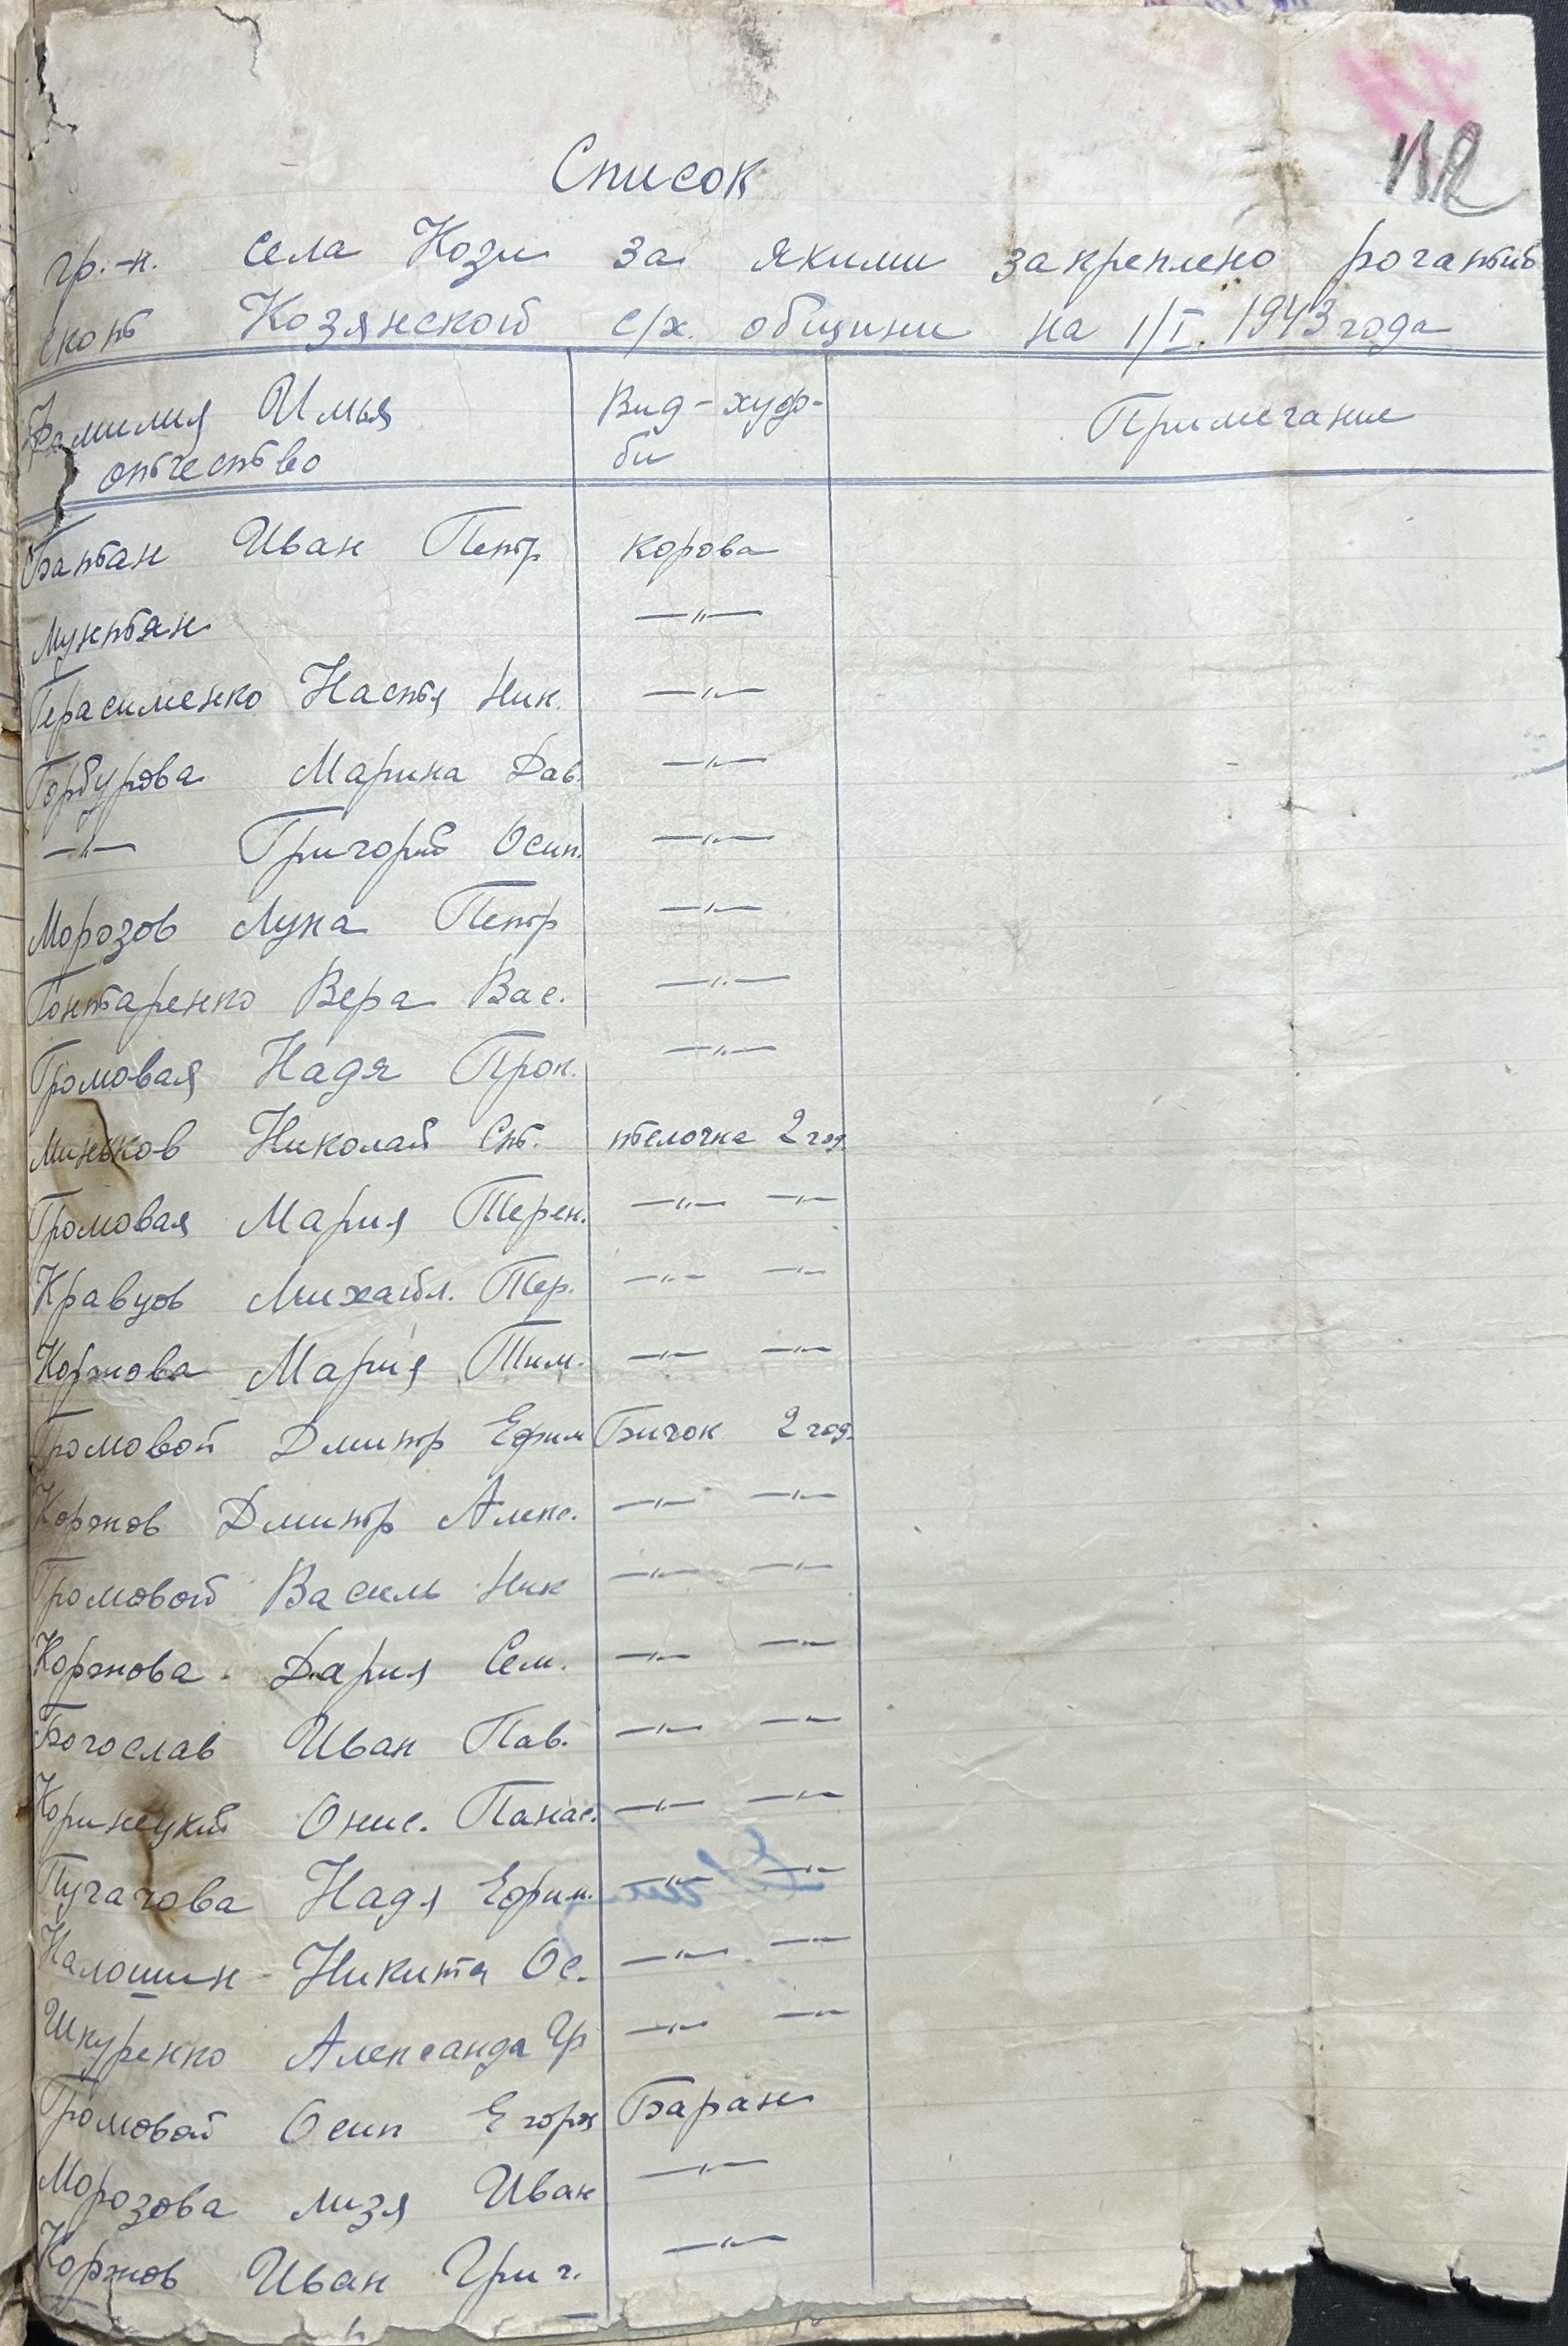 Список
гр.-н. села Кози за якими закреплено рогатий
скот Козянской с/х. общини на 1/I. 1943 года
Фамилия Имья Вид-худо- Примечание
отчество би
Баптан Иван Петр корова
Мунтян —"—
Герасименко Настя Ник. —"—
Горбурова Марина Дав. —"—
—"— Григорий Осип. —"—
Морозов Лука Петр —"—
Гонтаренко Вера Вас. —"—
Громовая Надя Прок. —"—
Миньков Николай Ст. телочка 2 год.
Громовая Мария Терен. —"— —"—
Кравцов Михайл. Тер. —"— —"—
Коржова Мария Тим. —"— —"—
Громовой Дмитр Ефим Бичок 2 год.
Коржов Дмитр Алекс. —"— —"—
Громовой Василь Ник —"— —"—
Коржова Дария Сем. —"— —"—
Богослав Иван Пав. —"— —"—
Коринецкий Онис. Панас. —"— —"—
Пугачова Надя Ефим. —"— —"—
Калошин Никита Ос. —"— —"—
Шкуренко Александа Гр —"— —"—
Громовой Осип Егоря Баран
Морозова Лизя Иван —"—
Коржов Иван Григ. —"—